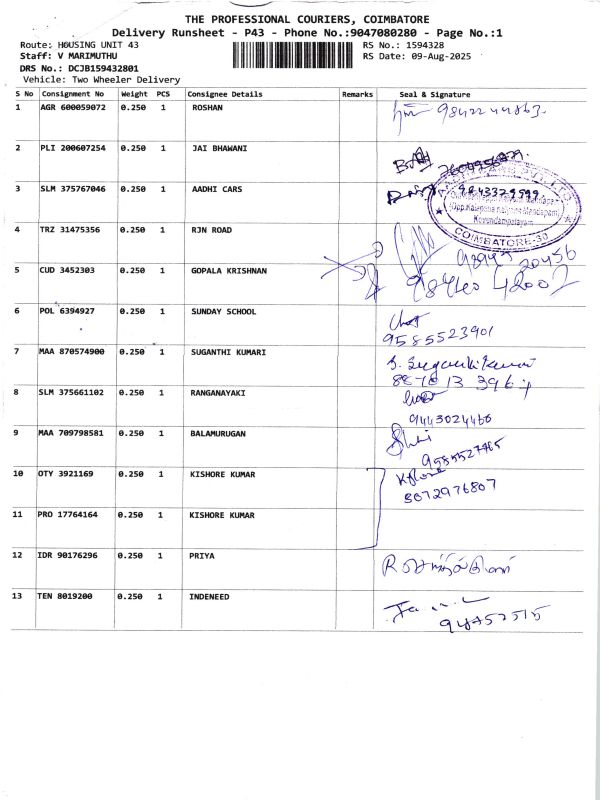 THE PROFESSIONAL COURIERS, COIMBATORE
Delivery Runsheet - P43 - Phone No.:9047080280 - Page No.:1
Route: HOUSING UNIT 43 RS No.: 1594328
Staff: V MARIMUTHU RS Date: 09-Aug-2025
DRS No.: DCJB159432801
Vehicle: Two Wheeler Delivery
S No Consignment No Weight PCS Consignee Details Remarks Seal & Signature
1 AGR 600059072 0.250 1 ROSHAN
2 PLI 200607254 0.250 1 JAI BHAWANI
3 SLM 375767046 0.250 1 AADHI CARS 9843379599
COIMBATORE-30
4 TRZ 31475356 0.250 1 RJN ROAD
5 CUD 3452303 0.250 1 GOPALA KRISHNAN
6 POL 6394927 0.250 1 SUNDAY SCHOOL
9585523901
7 MAA 870574900 0.250 1 SUGANTHI KUMARI S. Suganthi Kumari
8 SLM 375661102 0.250 1 RANGANAYAKI
9443024460
9 MAA 709798581 0.250 1 BALAMURUGAN
9585527465
10 OTY 3921169 0.250 1 KISHORE KUMAR
8072976807
11 PRO 17764164 0.250 1 KISHORE KUMAR
12 IDR 90176296 0.250 1 PRIYA
13 TEN 8019200 0.250 1 INDENEED